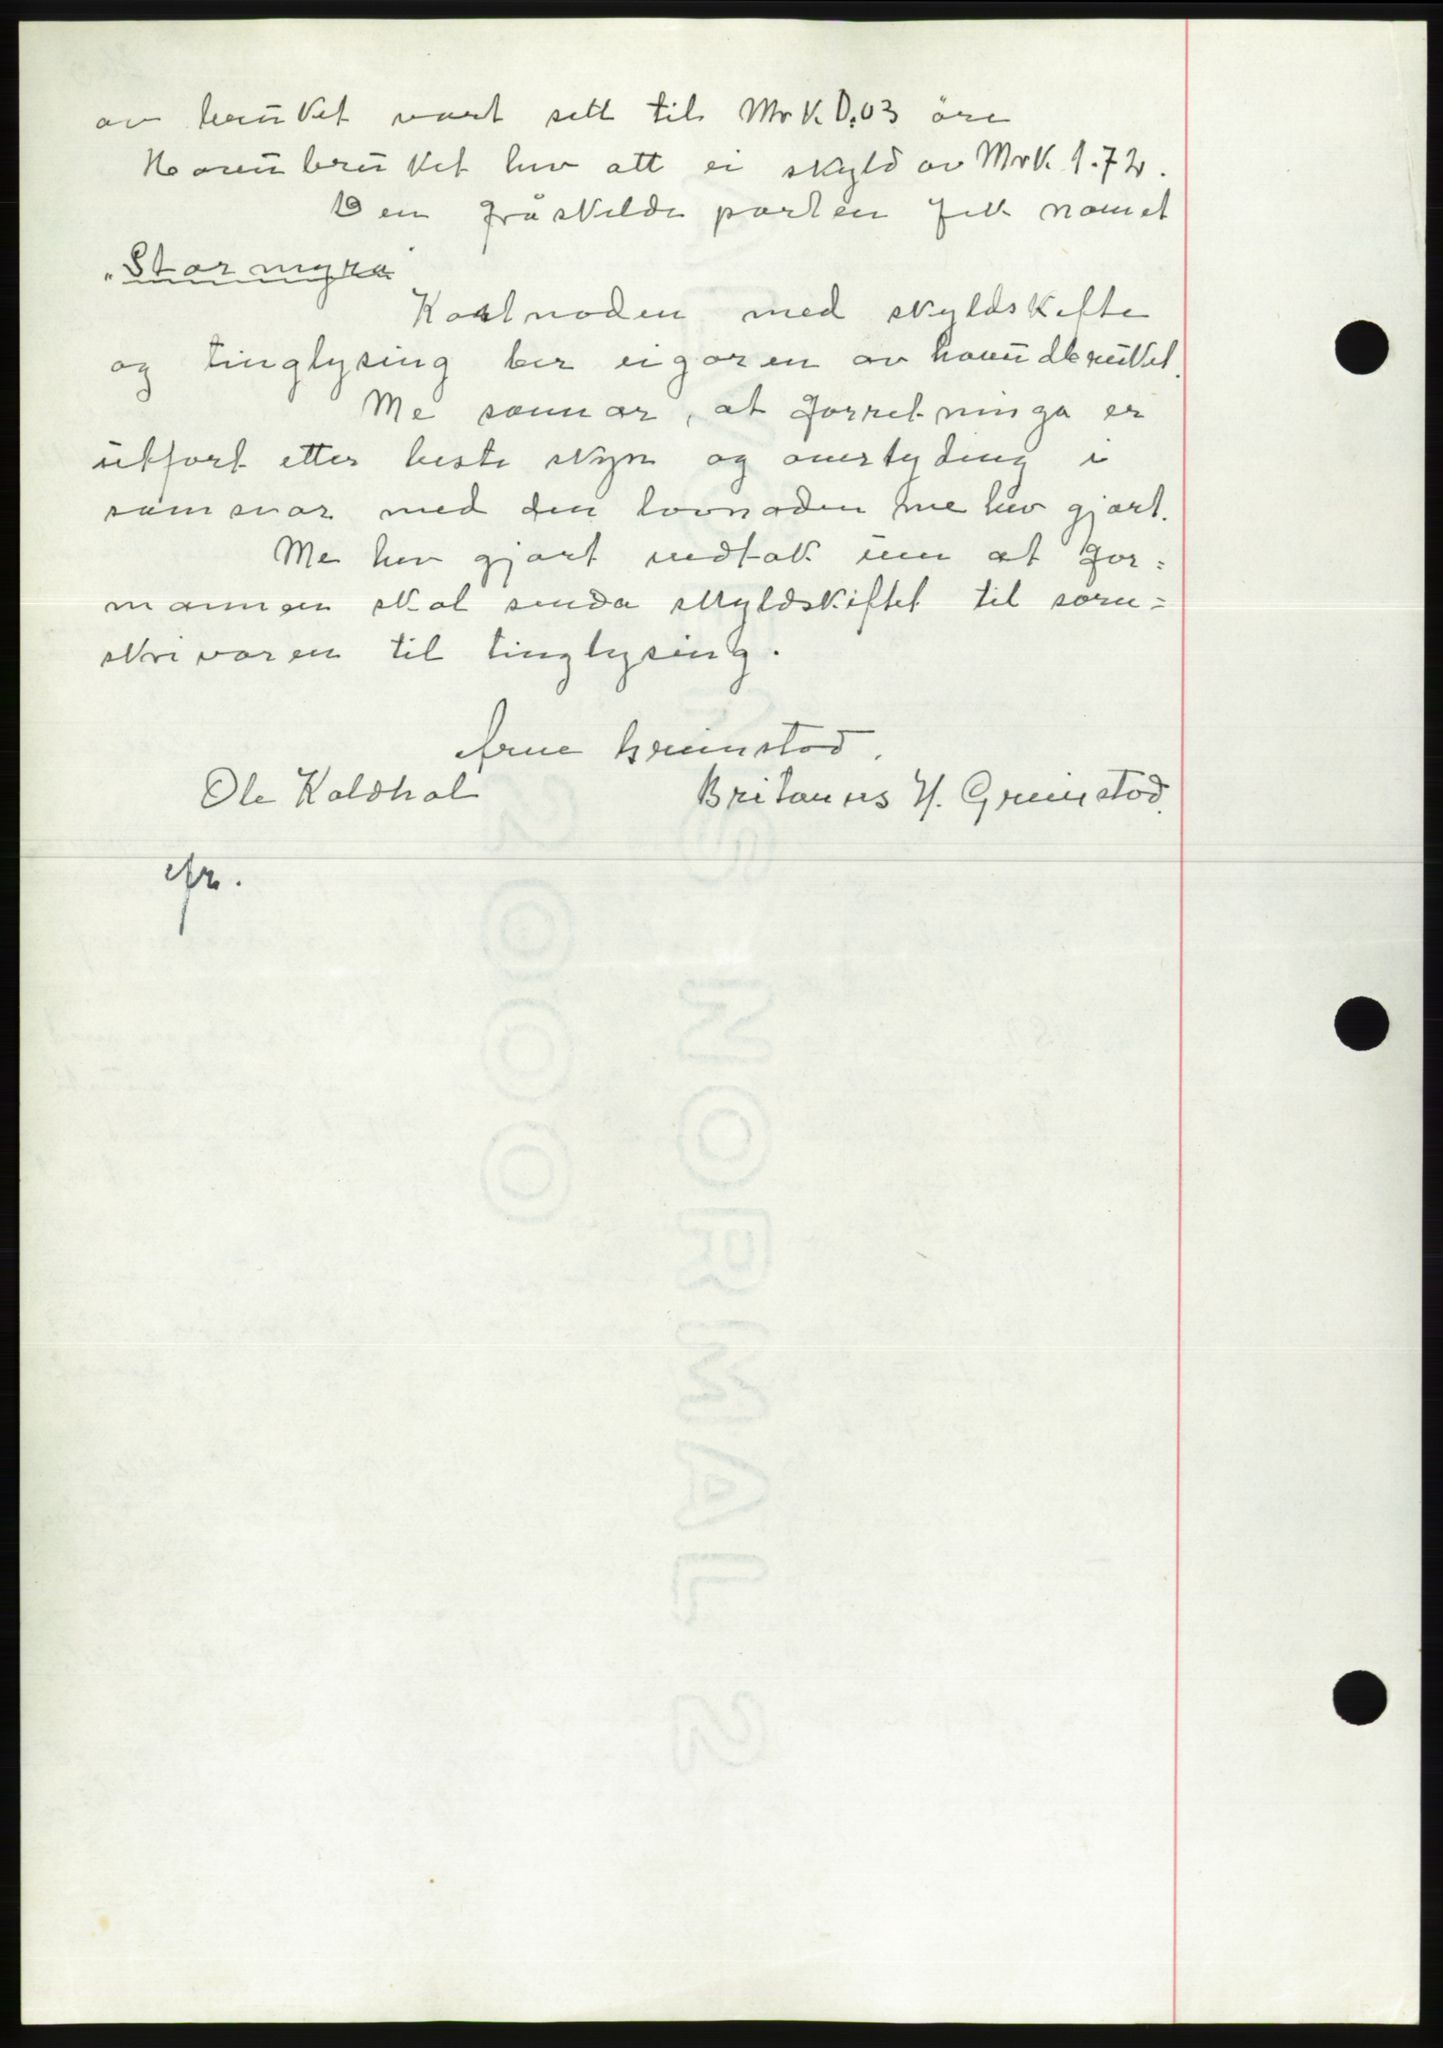 av bruket vart sett til Mrk. 0.03 öre
Hovūbrūket hev att ei skyld av Mrk. 1.72.
Den fråskilde parten fek namet
"Stormyra"
Kostnaden med skyldskifte
og tinglysing ber eigaren av hovūdbrūket.
Me sannar, at forretninga er
ūtført etter beste skyn og overtyding i
samsvar med den lovnaden me hev gjort.
Me hev gjort vedtak um at for=
mannen skal senda skyldskiftet til soren=
skrivaren til tinglysing.
Arne Grimstad.
Ole Kaldhol
Britanus H. Grimstad.
NORMAL 2
2000